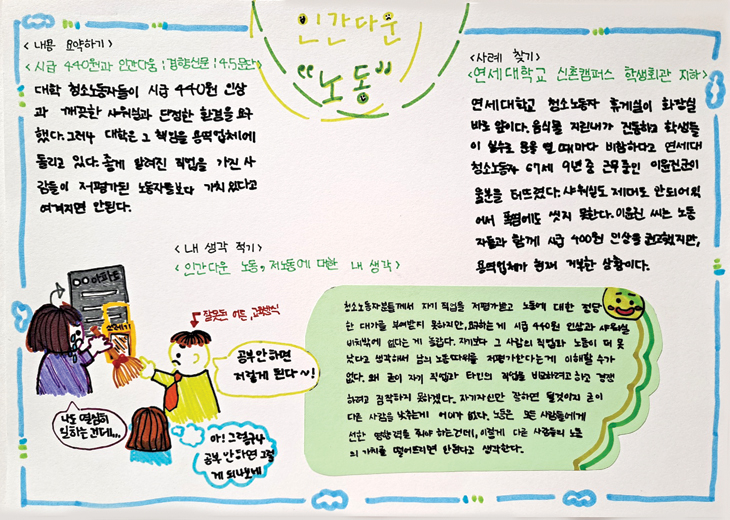 인간다운
"노동"
<내용 요약하기>
<시급 440원과 인간다움 | 경향신문 | 4.5문단>
대학 청소노동자들이 시급 440원 인상
과 깨끗한 샤워실과 단정한 환경을 요구
했다. 그러나 대학은 그 책임을 용역업체에
돌리고 있다. 좋게 알려진 직업을 가진 사
람들이 저평가된 노동자들보다 가치 있다고
여겨지면 안된다.
<사례 찾기>
<연세대학교 신촌캠퍼스 학생회관 지하>
연세대학교 청소노동자 휴게실이 화장실
바로 앞이다. 음식물 지린내가 진동하고 학생들
이 실수로 문을 열 때마다 비참하다고 연세대
청소노동자 67세 9년 중 근무중인 이윤진군이
울분을 터뜨렸다. 샤워실도 제대로 안되어있
어서 폭염에도 씻지 못한다. 이윤진 씨는 노동
자들과 함께 시급 400원 인상을 권고했지만,
용역업체가 현재 거부한 상황이다.
<내 생각 적기>
<인간다운 노동, 저노동에 대한 내 생각>
청소노동자분들께서 자기 직업을 저평가받고 노동에 대한 정당
한 대가를 부여받지 못하지만, 요구하는게 시급 440원 인상과 샤워실
비치밖에 없다는 게 슬펐다. 자기보다 그 사람의 직업과 노동이 더 못
났다고 생각해서 남의 노동따위를 저평가한다는게 이해할 수가
없다. 왜 굳이 자기 직업과 타인의 직업을 비교하려고 하고 경쟁
하려고 짐작하지 못하겠다. 자기자신만 잘하면 될것이지 굳이
다른 사람을 낮추는게 어이가 없다. 노동은 모든 사람들에게
선한 영향력을 줘야 하는건데, 이렇게 다른 사람들의 노동
의 가치를 떨어뜨리면 안된다고 생각한다.
○○아파트
쓰레기
잘못된 어른, 고정관식
공부 안 하면
저렇게 된다~!
나도 열심히
일하는건데...
아! 그렇구나
공부 안 하면 그렇
게 되나보네